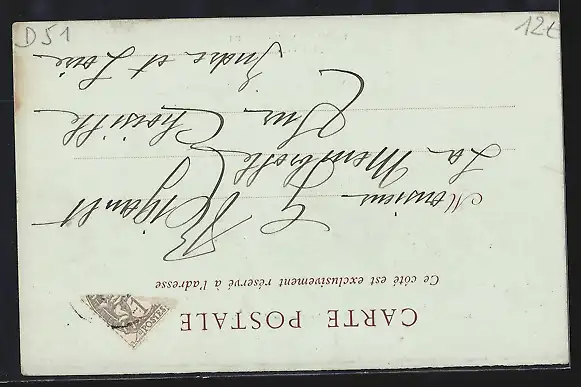 CARTE POSTALE
Ce côté est exclusivement réservé à l'adresse
Monsieur G
La Membrolle
Sur Choisille
Indre et Loire
D51
12€
POSTES